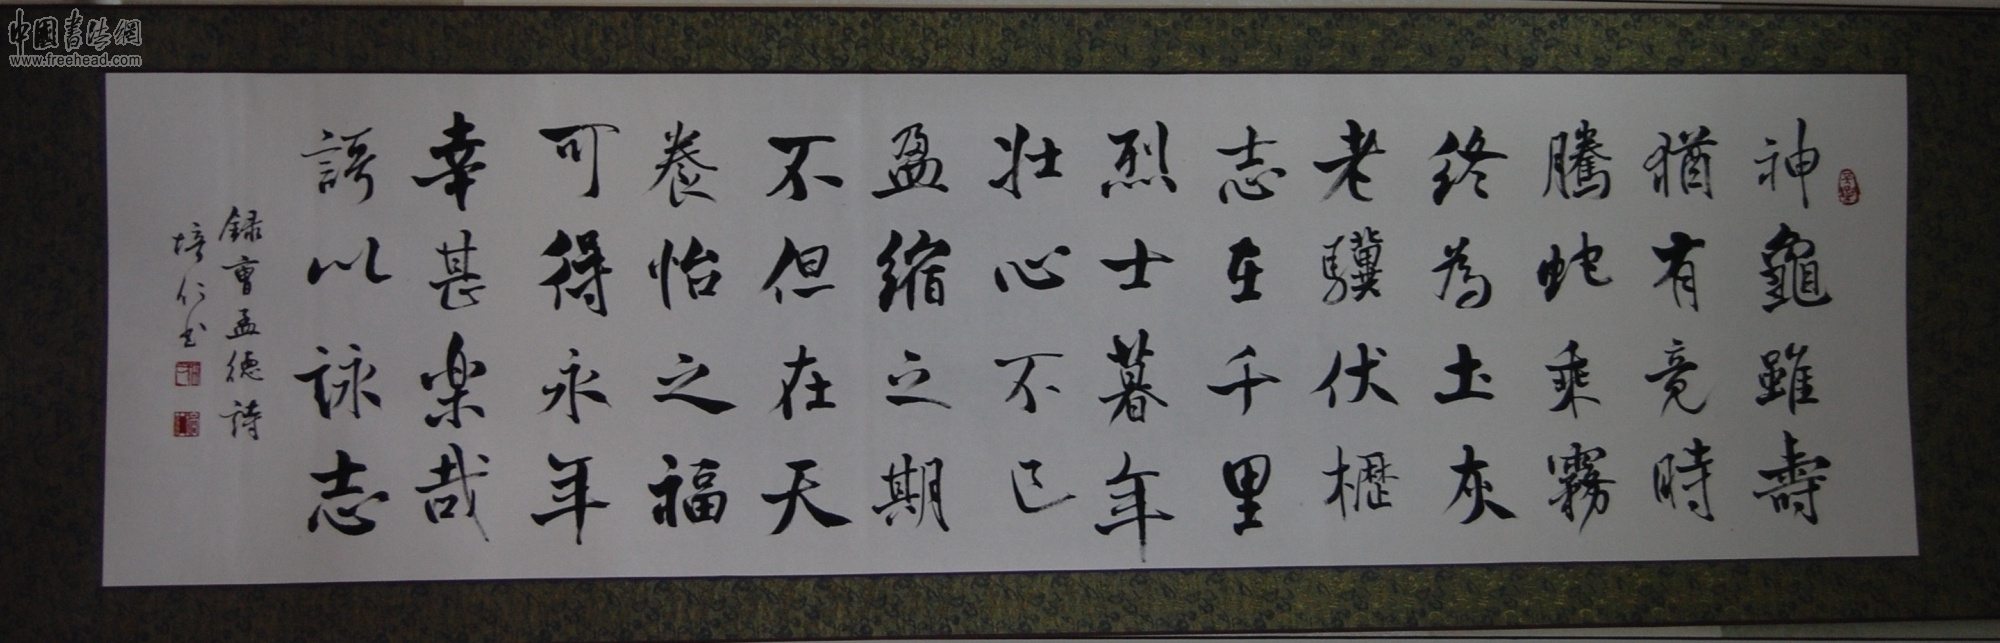 神龜雖壽
猶有竟時
騰蛇乘霧
終為土灰
老驥伏櫪
志在千里
烈士暮年
壯心不已
盈縮之期
不但在天
養怡之福
可得永年
幸甚樂哉
謌以詠志
録曹孟德詩
培仁书
中國書法網
www.freehead.com